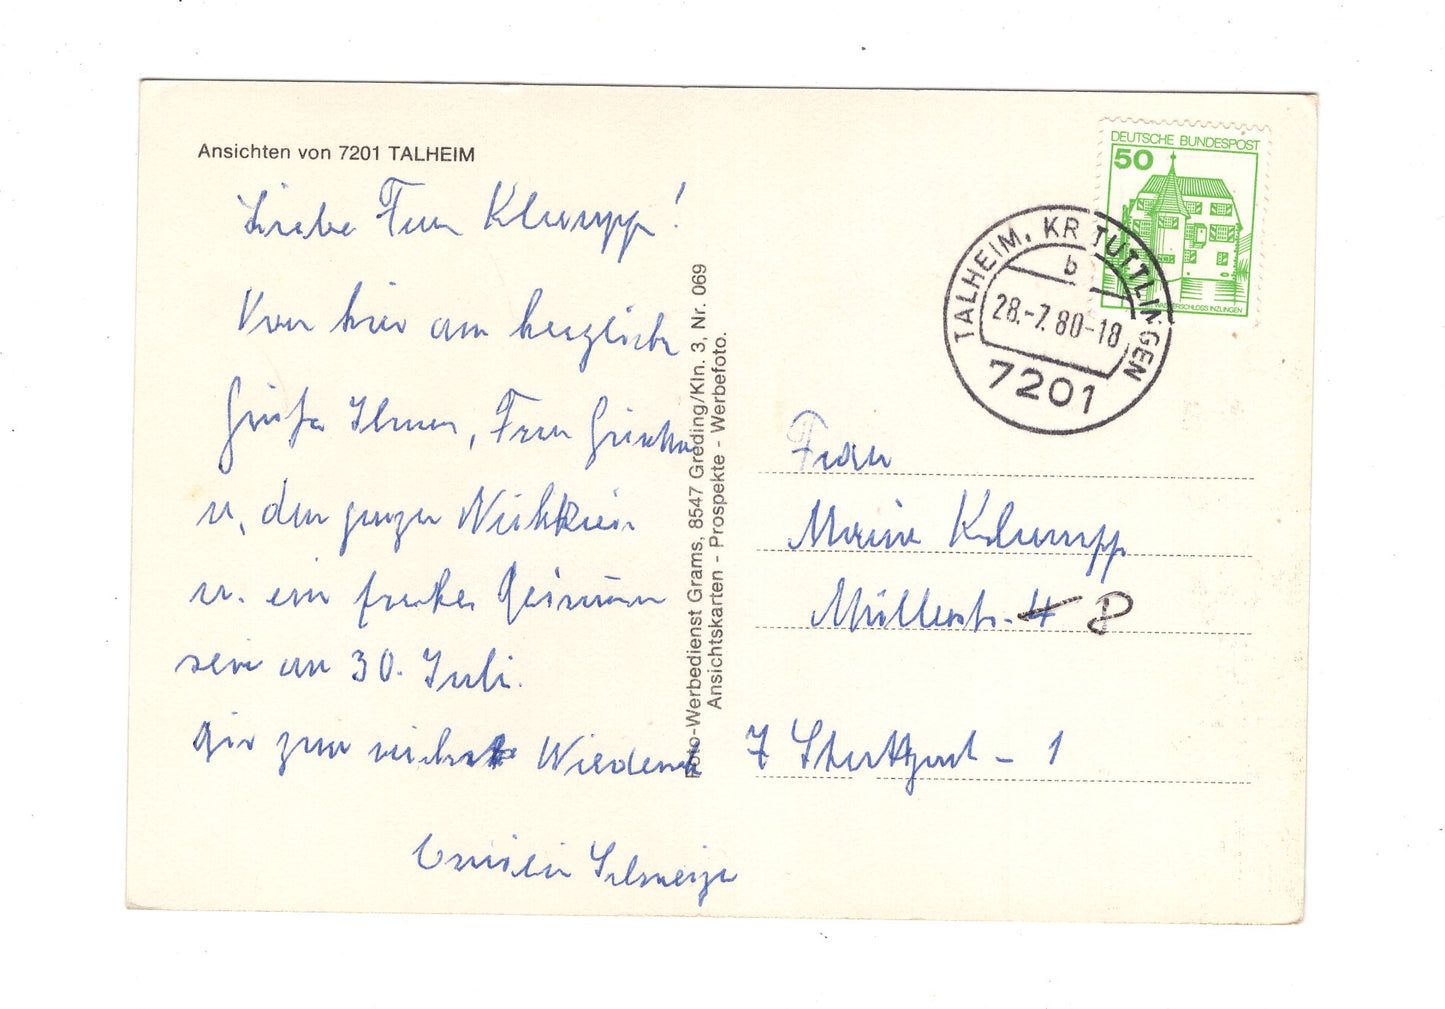 Ansichten von 7201 TALHEIM
Liebe Frau Klumpp!
Von hier am herzliche
Grüße Ihnen, Frau
u. den ganzen
u. ein frohes
sein am 30. Juli.
Bis zum nächst Wiederseh
Schweizer
Foto-Werbedienst Grams, 8547 Greding/Kln. 3, Nr. 069
Ansichtskarten - Prospekte - Werbefoto.
DEUTSCHE BUNDESPOST
50
WASSERSCHLOSS INZLINGEN
TALHEIM, KR TUTTLINGEN
b
28.-7.80-18
7201
Frau
Maria Klumpp
Müllerstr. 4 8
7 Stuttgart - 1